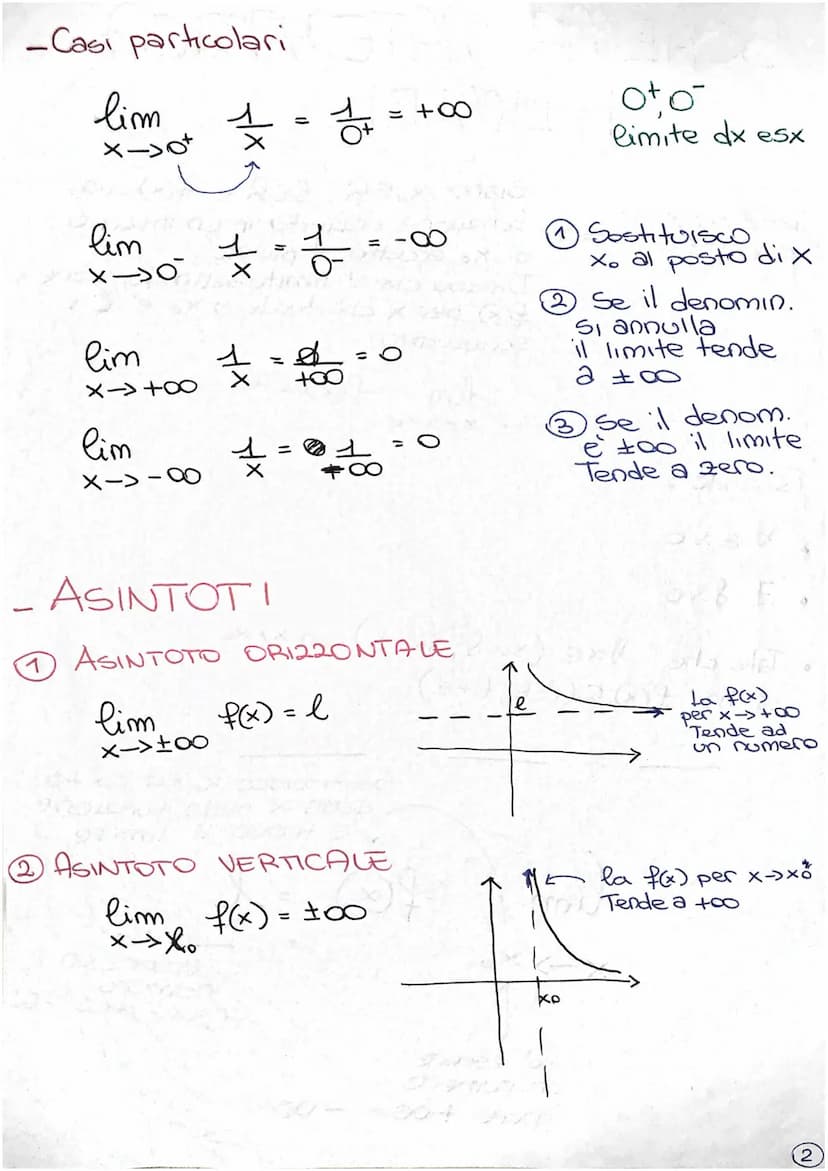 - Casi particolari
lim x→0⁺ 1/x = 1/0⁺ = +∞
0⁺, 0⁻
limite dx e sx
lim x→0⁻ 1/x = 1/0⁻ = -∞
① Sostituisco
x₀ al posto di x
② Se il denomin.
si annulla
il limite tende
a ±∞
lim x→+∞ 1/x = 1/+∞ = 0
lim x→-∞ 1/x = 1/-∞ = 0
③ Se il denom.
e' ±∞ il limite
Tende a zero.
- ASINTOTI
① ASINTOTO ORIZZONTALE
lim x→±∞ f(x) = l
l
La f(x)
per x→+∞
Tende ad
un numero
② ASINTOTO VERTICALE
lim x→x₀ f(x) = ±∞
la f(x) per x→x₀⁺
Tende a +∞
x₀
②